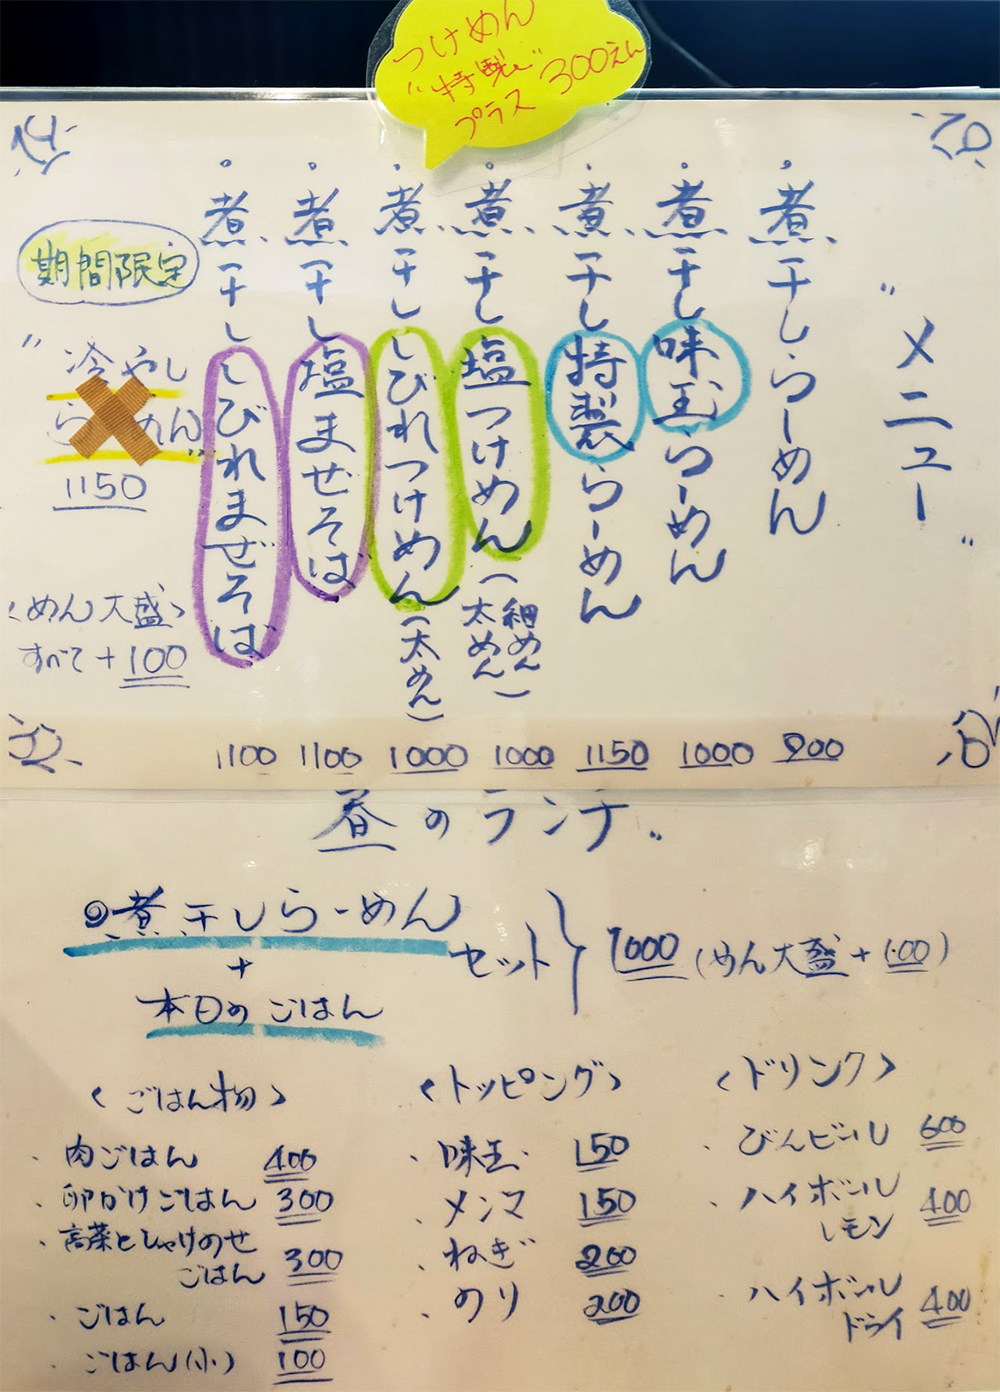 つけめん
"特製"
プラス 300えん
"メニュー"
・煮干しらーめん 900
・煮干し味玉らーめん 1000
・煮干し特製らーめん 1150
・煮干し塩つけめん(細めん 太めん) 1000
・煮干ししびれつけめん(太めん) 1000
・煮干し塩まぜそば 1100
・煮干ししびれまぜそば 1100
期間限定
"冷やし
らーめん"
1150
<めん大盛>
すべて+100
昼のランチ
◎煮干しらーめん
+
本日のごはん
セット
1000(めん大盛+100)
<ごはん物>
・肉ごはん 400
・卵かけごはん 300
・高菜としゃけのせ
ごはん 300
・ごはん 150
・ごはん(小) 100
<トッピング>
・味玉 150
・メンマ 150
・ねぎ 200
・のり 200
<ドリンク>
・びんビール 600
・ハイボール
レモン 400
・ハイボール
ドライ 400